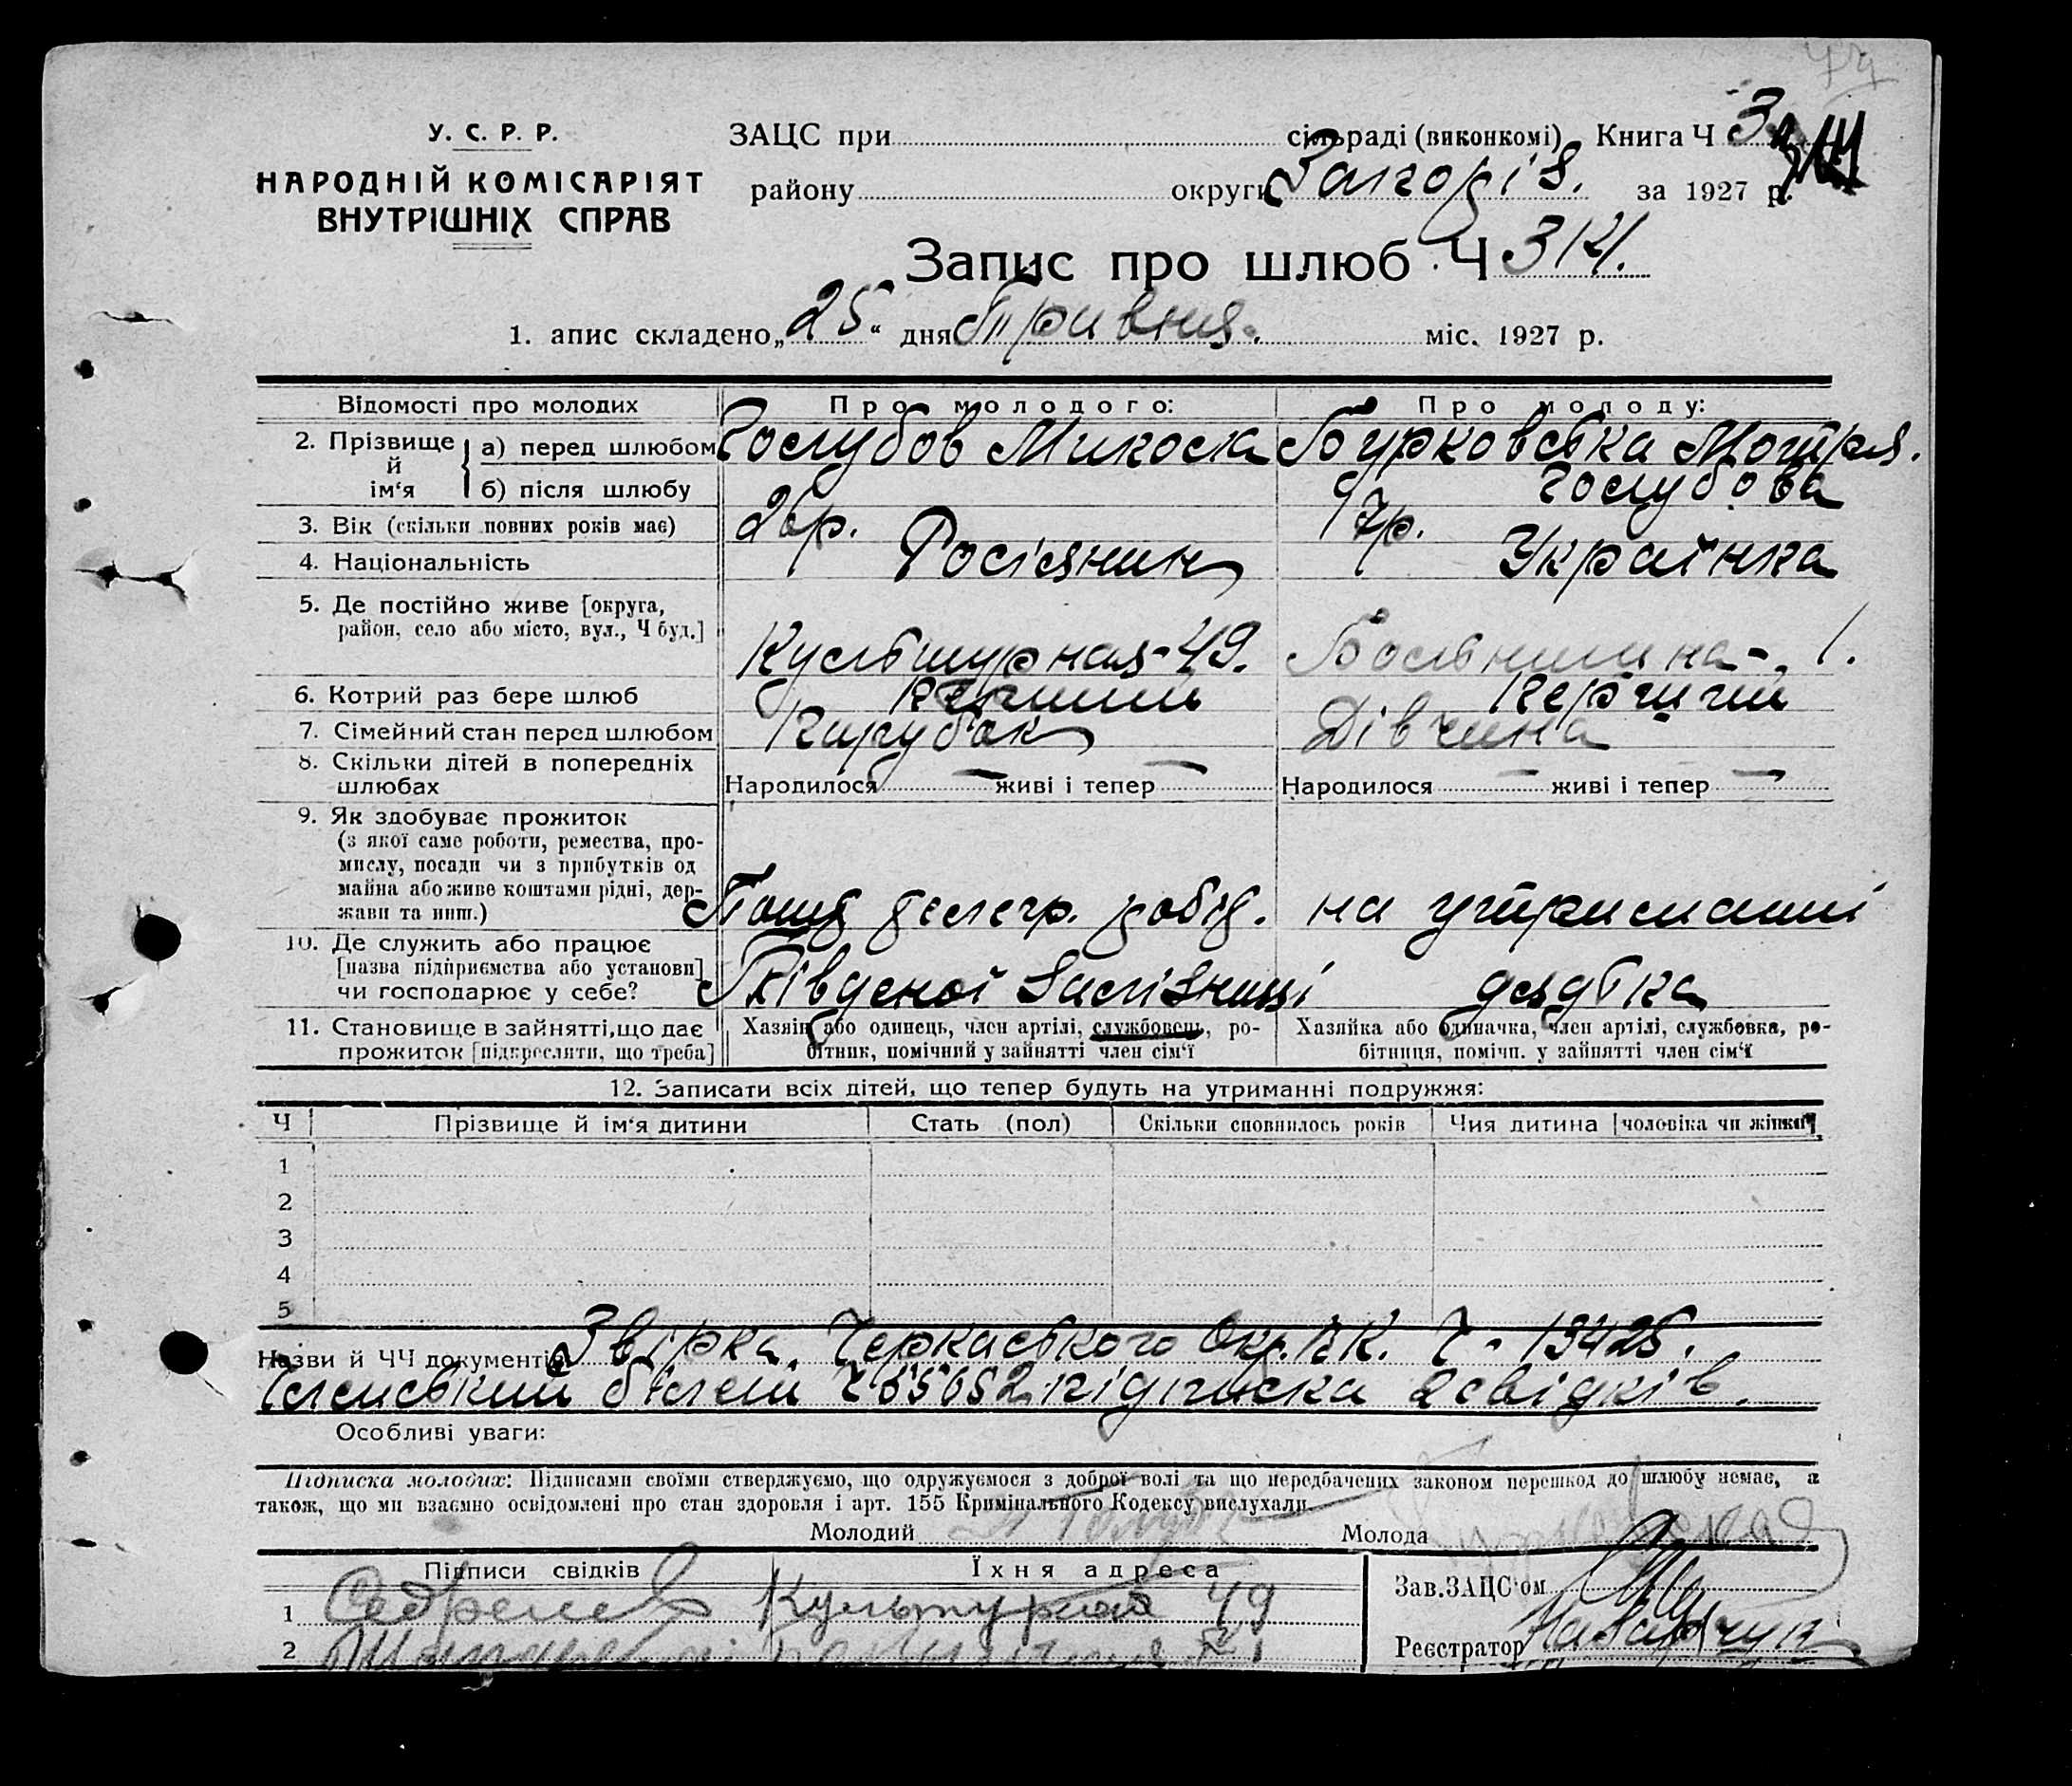 У. С. Р. Р.
НАРОДНІЙ КОМІСАРІЯТ
ВНУТРІШНІХ СПРАВ
ЗАЦС при сільраді (виконкомі) Книга Ч 3
району округи за 1927 р.
Запис про шлюб Ч 314.
1. апис складено „25“ дня Травня. міс. 1927 р.
Відомості про молодих
Про молодого:
Про молоду:
2. Прізвище й ім‘я
а) перед шлюбом
Голубов Микола
Бурковська Мотря.
б) після шлюбу
Голубова
3. Вік (скільки повних років має)
26р.
17р.
4. Національність
Росіянин
Українка
5. Де постійно живе [округа,
район, село або місто, вул., Ч буд.]
Культурная-49.
Больнична-1.
6. Котрий раз бере шлюб
Перший
7. Сімейний стан перед шлюбом
Парубок
Дівчина
8. Скільки дітей в попередніх
шлюбах
Народилося — живі і тепер —
Народилося — живі і тепер —
9. Як здобуває прожиток
(з якої саме роботи, ремества, про-
мислу, посади чи з прибутків од
майна або живе коштами рідні, дер-
жави та инш.)
телегр. робід.
на утриманні
10. Де служить або працює
[назва підприємства або установи]
чи господарює у себе?
Південої Залізниці
дядька
11. Становище в зайнятті, що дає
прожиток [підкреслити, що треба]
Хазяін або одинець, член артілі, службовець, ро-
бітник, помічний у зайнятті член сім‘ї
Хазяйка або одиначка, член артілі, службовка, ро-
бітниця, помічн. у зайнятті член сім‘ї
12. Записати всіх дітей, що тепер будуть на утриманні подружжя:
Ч
Прізвище й ім‘я дитини
Стать (пол)
Скільки сповнилось років
Чия дитина [чоловіка чи жінки]
1
2
3
4
5
Назви й ЧЧ документів Звірка Черкаського Окр. В.К. Ч - 13425.
Членський білет Ч 65652 підписка 2 свідків.
Особливі уваги:
Підписка молодих: Підписами своїми стверджуємо, що одружуємося з доброї волі та що передбачених законом перешкод до шлюбу немає, а
також, що ми взаємно освідомлені про стан здоровля і арт. 155 Кримінального Кодексу вислухали.
Молодий
Молода
Підписи свідків
Їхня адреса
Зав. ЗАЦС‘ом
1
Культурная 49
2
Реєстратор